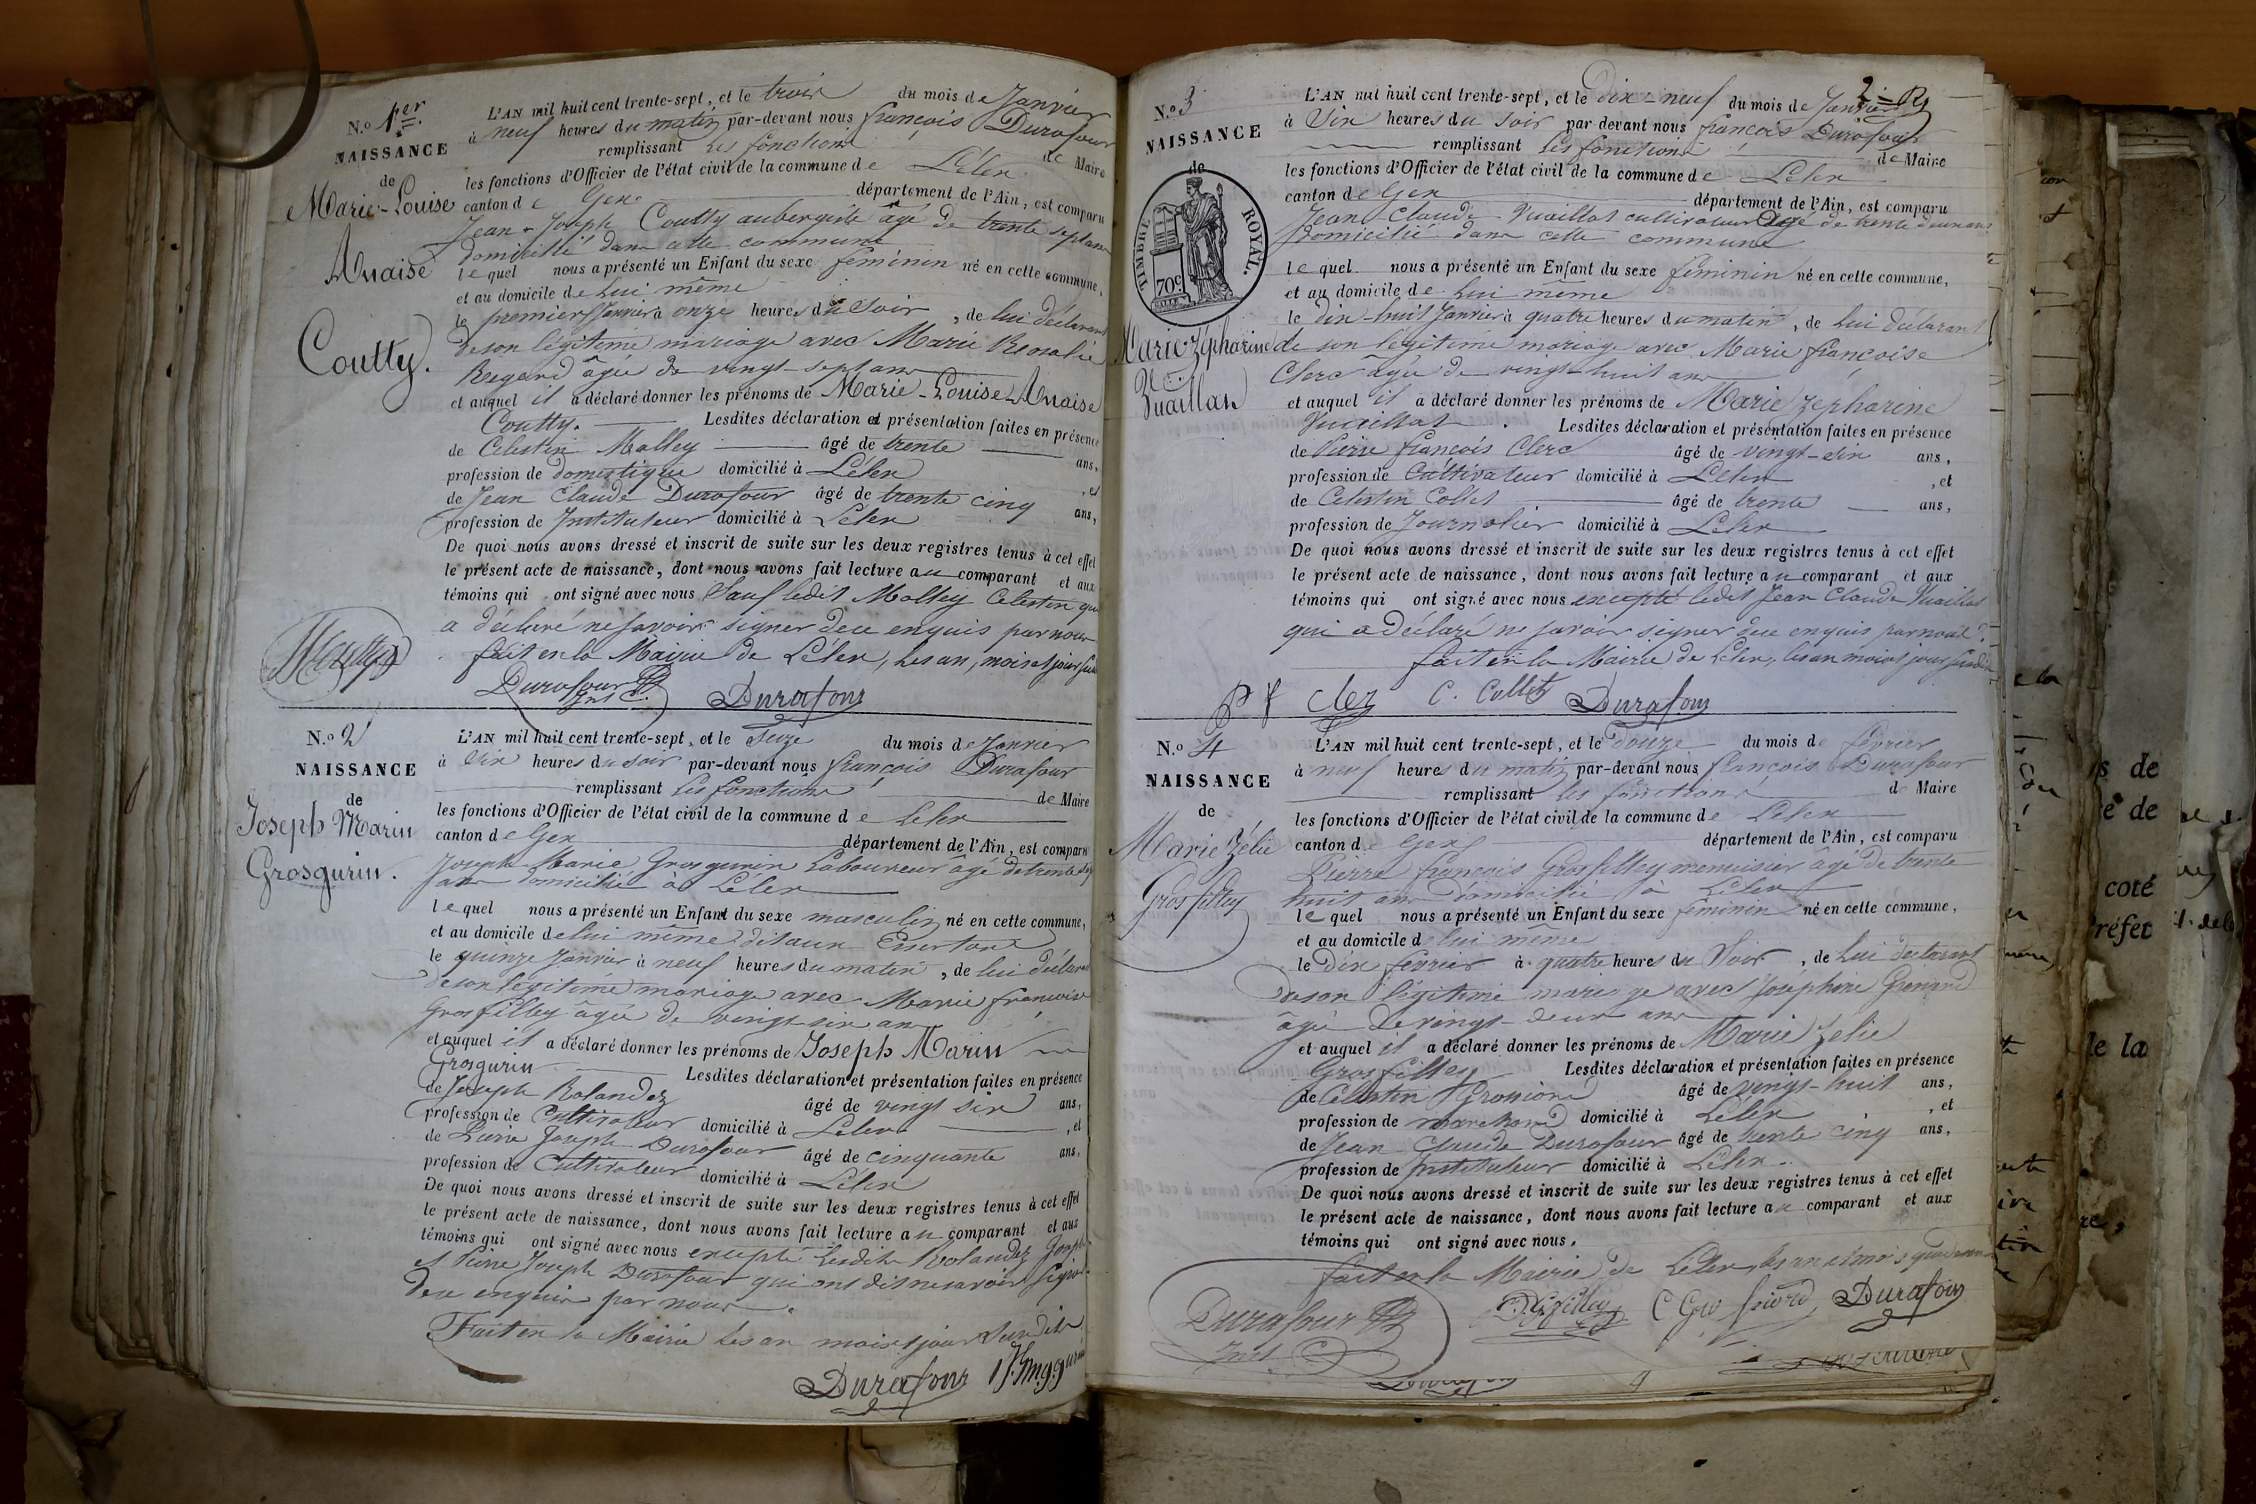 N.o 1er.
NAISSANCE
de
Marie-Louise
Anaise
Coutty.
L'AN mil huit cent trente-sept, et le trois du mois de Janvier
à neuf heures du matin par-devant nous françois Durafour
remplissant les fonctions de Maire
les fonctions d'Officier de l'état civil de la commune de Lélex
canton de Gex département de l'Ain, est comparu
Jean-Joseph Coutty aubergiste âgé de trente sept ans
domicilié dans cette commune
lequel nous a présenté un Enfant du sexe féminin né en cette commune,
et au domicile de lui même
le premier Janvier à onze heures du Soir, de lui déclarant
de son légitime mariage avec Marie Rosalie
Regard âgée de vingt-sept ans
et auquel il a déclaré donner les prénoms de Marie-Louise Anaise
Coutty. Lesdites déclaration et présentation faites en présence
de Celestin Molley âgé de trente ans,
profession de domestique domicilié à Lélex, et
de Jean Claude Durafour âgé de trente cinq ans,
profession de Instituteur domicilié à Lélex
De quoi nous avons dressé et inscrit de suite sur les deux registres tenus à cet effet
le présent acte de naissance, dont nous avons fait lecture au comparant et aux
témoins qui ont signé avec nous Sauf ledit Molley Celestin qui
a déclaré ne savoir signer de ce enquis par nous
fait en la Mairie de Lélex, les an, mois et jour susdits
Coutty
Durafour
Inst.
Durafour
N.o 2
NAISSANCE
de
Joseph Marin
Grosgurin.
L'AN mil huit cent trente-sept, et le Seize du mois de Janvier
à Six heures du soir par-devant nous françois Durafour
remplissant les fonctions de Maire
les fonctions d'Officier de l'état civil de la commune de Lélex
canton de Gex département de l'Ain, est comparu
Joseph Marie Grosgurin Laboureur âgé de trente
ans domicilié à Lélex
lequel nous a présenté un Enfant du sexe masculin né en cette commune,
et au domicile de lui même dit aux
le quinze Janvier à neuf heures du matin, de lui déclarant
de son légitime mariage avec Marie françoise
Grosfilley âgée de vingt six ans
et auquel il a déclaré donner les prénoms de Joseph Marin
Grosgurin Lesdites déclaration et présentation faites en présence
de Joseph Rolandez âgé de vingt six ans,
profession de Cultivateur domicilié à Lélex, et
de Pierre Joseph Durafour âgé de cinquante ans,
profession de Cultivateur domicilié à Lélex
De quoi nous avons dressé et inscrit de suite sur les deux registres tenus à cet effet
le présent acte de naissance, dont nous avons fait lecture au comparant et aux
témoins qui ont signé avec nous excepté lesdits Rolandez Joseph
et Pierre Joseph Durafour qui ont dit ne savoir signer
de ce enquis par nous.
Fait en la Mairie les an mois et jour Susdits
Durafour
2
N.o 3
NAISSANCE
de
TIMBRE ROYAL.
70c
Marie Zépharine
Vuaillat
L'AN mil huit cent trente-sept, et le Dix-neuf du mois de Janvier
à Six heures du Soir par devant nous françois Durafour
remplissant les fonctions de Maire
les fonctions d'Officier de l'état civil de la commune de Lélex
canton de Gex département de l'Ain, est comparu
Jean Claude Vuaillat cultivateur âgé de trente deux ans
domicilié dans cette commune
lequel nous a présenté un Enfant du sexe féminin né en cette commune,
et au domicile de lui même
le Dix-huit Janvier à quatre heures du matin, de lui déclarant
de son légitime mariage avec Marie françoise
Clerc âgée de vingt huit ans
et auquel il a déclaré donner les prénoms de Marie Zépharine
Vuaillat. Lesdites déclaration et présentation faites en présence
de Pierre françois Clerc âgé de vingt-six ans,
profession de Cultivateur domicilié à Lélex, et
de Celestin Collet âgé de trente ans,
profession de Journalier domicilié à Lélex
De quoi nous avons dressé et inscrit de suite sur les deux registres tenus à cet effet
le présent acte de naissance, dont nous avons fait lecture au comparant et aux
témoins qui ont signé avec nous excepté ledit Jean Claude Vuaillat
qui a déclaré ne savoir signer de ce enquis par nous.
fait en la Mairie de Lélex, les an mois et jour susdits
P f Clez C. Collet Durafour
N.o 4
NAISSANCE
de
Marie Zélie
Grosfilley
L'AN mil huit cent trente-sept, et le Douze du mois de février
à neuf heures du matin par-devant nous françois Durafour
remplissant les fonctions de Maire
les fonctions d'Officier de l'état civil de la commune de Lélex
canton de Gex département de l'Ain, est comparu
Pierre françois Grosfilley menuisier âgé de trente
huit ans domicilié à Lélex
lequel nous a présenté un Enfant du sexe féminin né en cette commune,
et au domicile de lui même
le Dix février à quatre heures du Soir, de lui déclarant
de son légitime mariage avec Joséphine Grenard
âgée de vingt-deux ans
et auquel il a déclaré donner les prénoms de Marie Zélie
Grosfilley Lesdites déclaration et présentation faites en présence
de Célestin âgé de vingt-huit ans,
profession de marchand domicilié à Lélex, et
de Jean Claude Durafour âgé de trente cinq ans,
profession de Instituteur domicilié à Lélex.
De quoi nous avons dressé et inscrit de suite sur les deux registres tenus à cet effet
le présent acte de naissance, dont nous avons fait lecture au comparant et aux
témoins qui ont signé avec nous.
fait en la Mairie de Lélex, les an et mois que dessus
Durafour
Inst.
Durafour
s de
e de
coté
réfet
le la